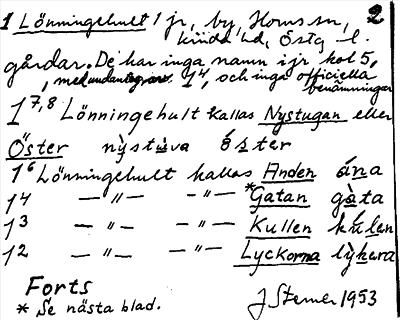 1 Lönningehult 1 jr, by, Horns sn, 2
Kinda hd, Östg. l.
gårdar. De har inga namn i jr kol 5,
, med undantag av 1⁴, och inga officiella
benämningar
1⁷,⁸ Lönningehult kallas Nystugan eller
Öster nystuva öster
1⁶ Lönningehult kallas Anden ána
1⁴ — " — — " — *Gatan gàta
1³ — " — — " — Kullen kúlen
1² — " — — " — Lyckorna lỳkera
Forts
* Se nästa blad. J Sterner 1953